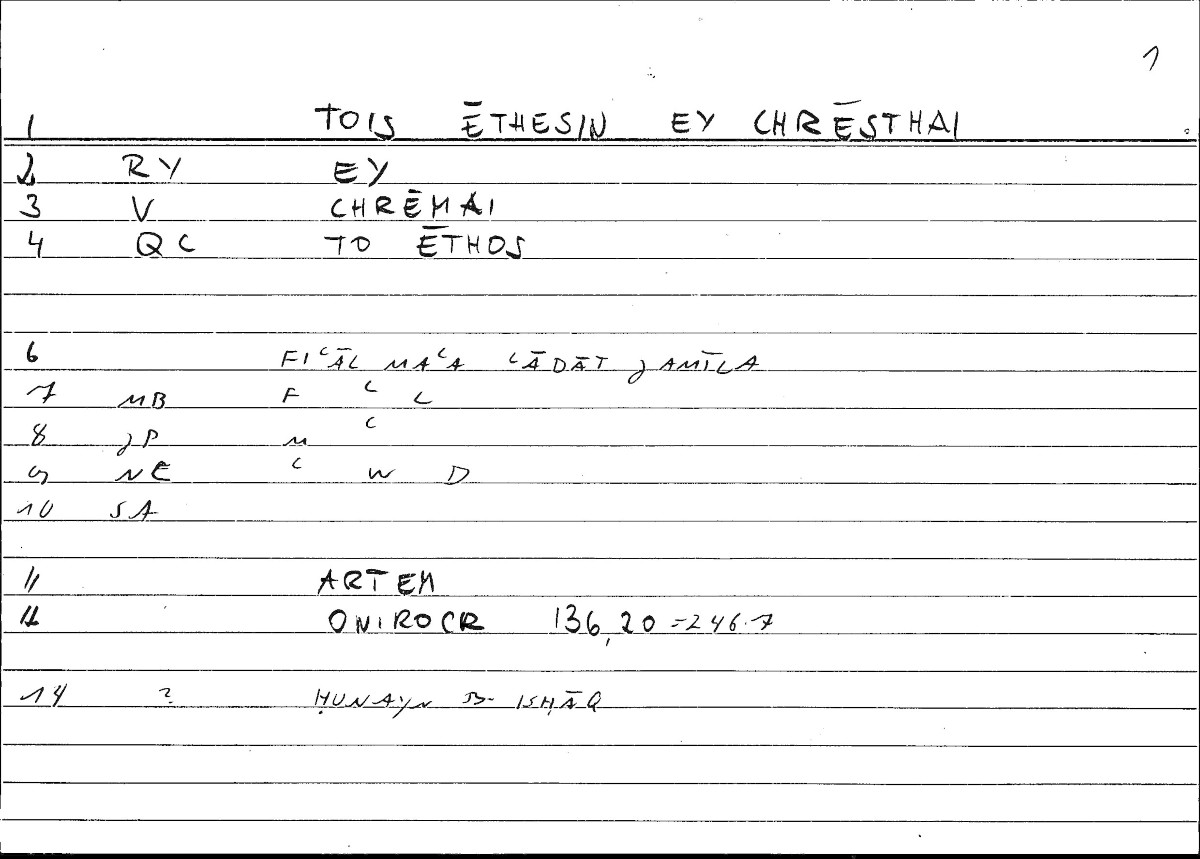 1
1 TOIS ĒTHESIN EY CHRĒSTHAI
2 RY EY
3 V CHRĒMAI
4 QC TO ĒTHOS
6 FIʿĀL MAʿA ʿĀDĀT JAMĪLA
7 MB F ʿ L
8 JP M ʿ
9 NE ʿ W D
10 SA
11 ARTEM
12 ONIROCR 136,20 = 246.7
14 ? ḤUNAYN B- ISḤĀQ